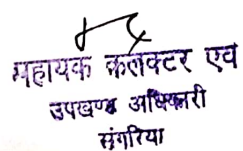 सहायक कलेक्टर एवं
उपखण्ड अधिकारी
संगरिया